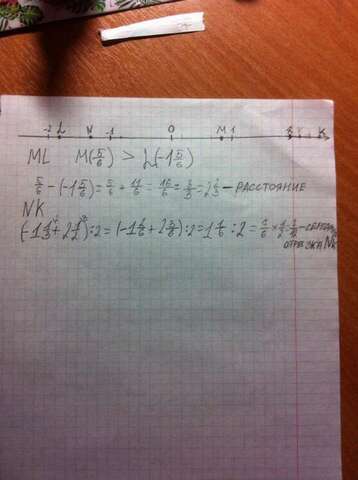 -2 L N -1 0 M 1 2 K
ML M(5/6) > L(-1 5/6)
5/6 - (-1 5/6) = 5/6 + 11/6 = 16/6 = 8/3 = 2 2/3 - РАССТОЯНИЕ
NK
(-1 1/3 + 2 1/2) : 2 = (-1 2/6 + 2 3/6) : 2 = 1 1/6 : 2 =
ОТРЕЗКА NK